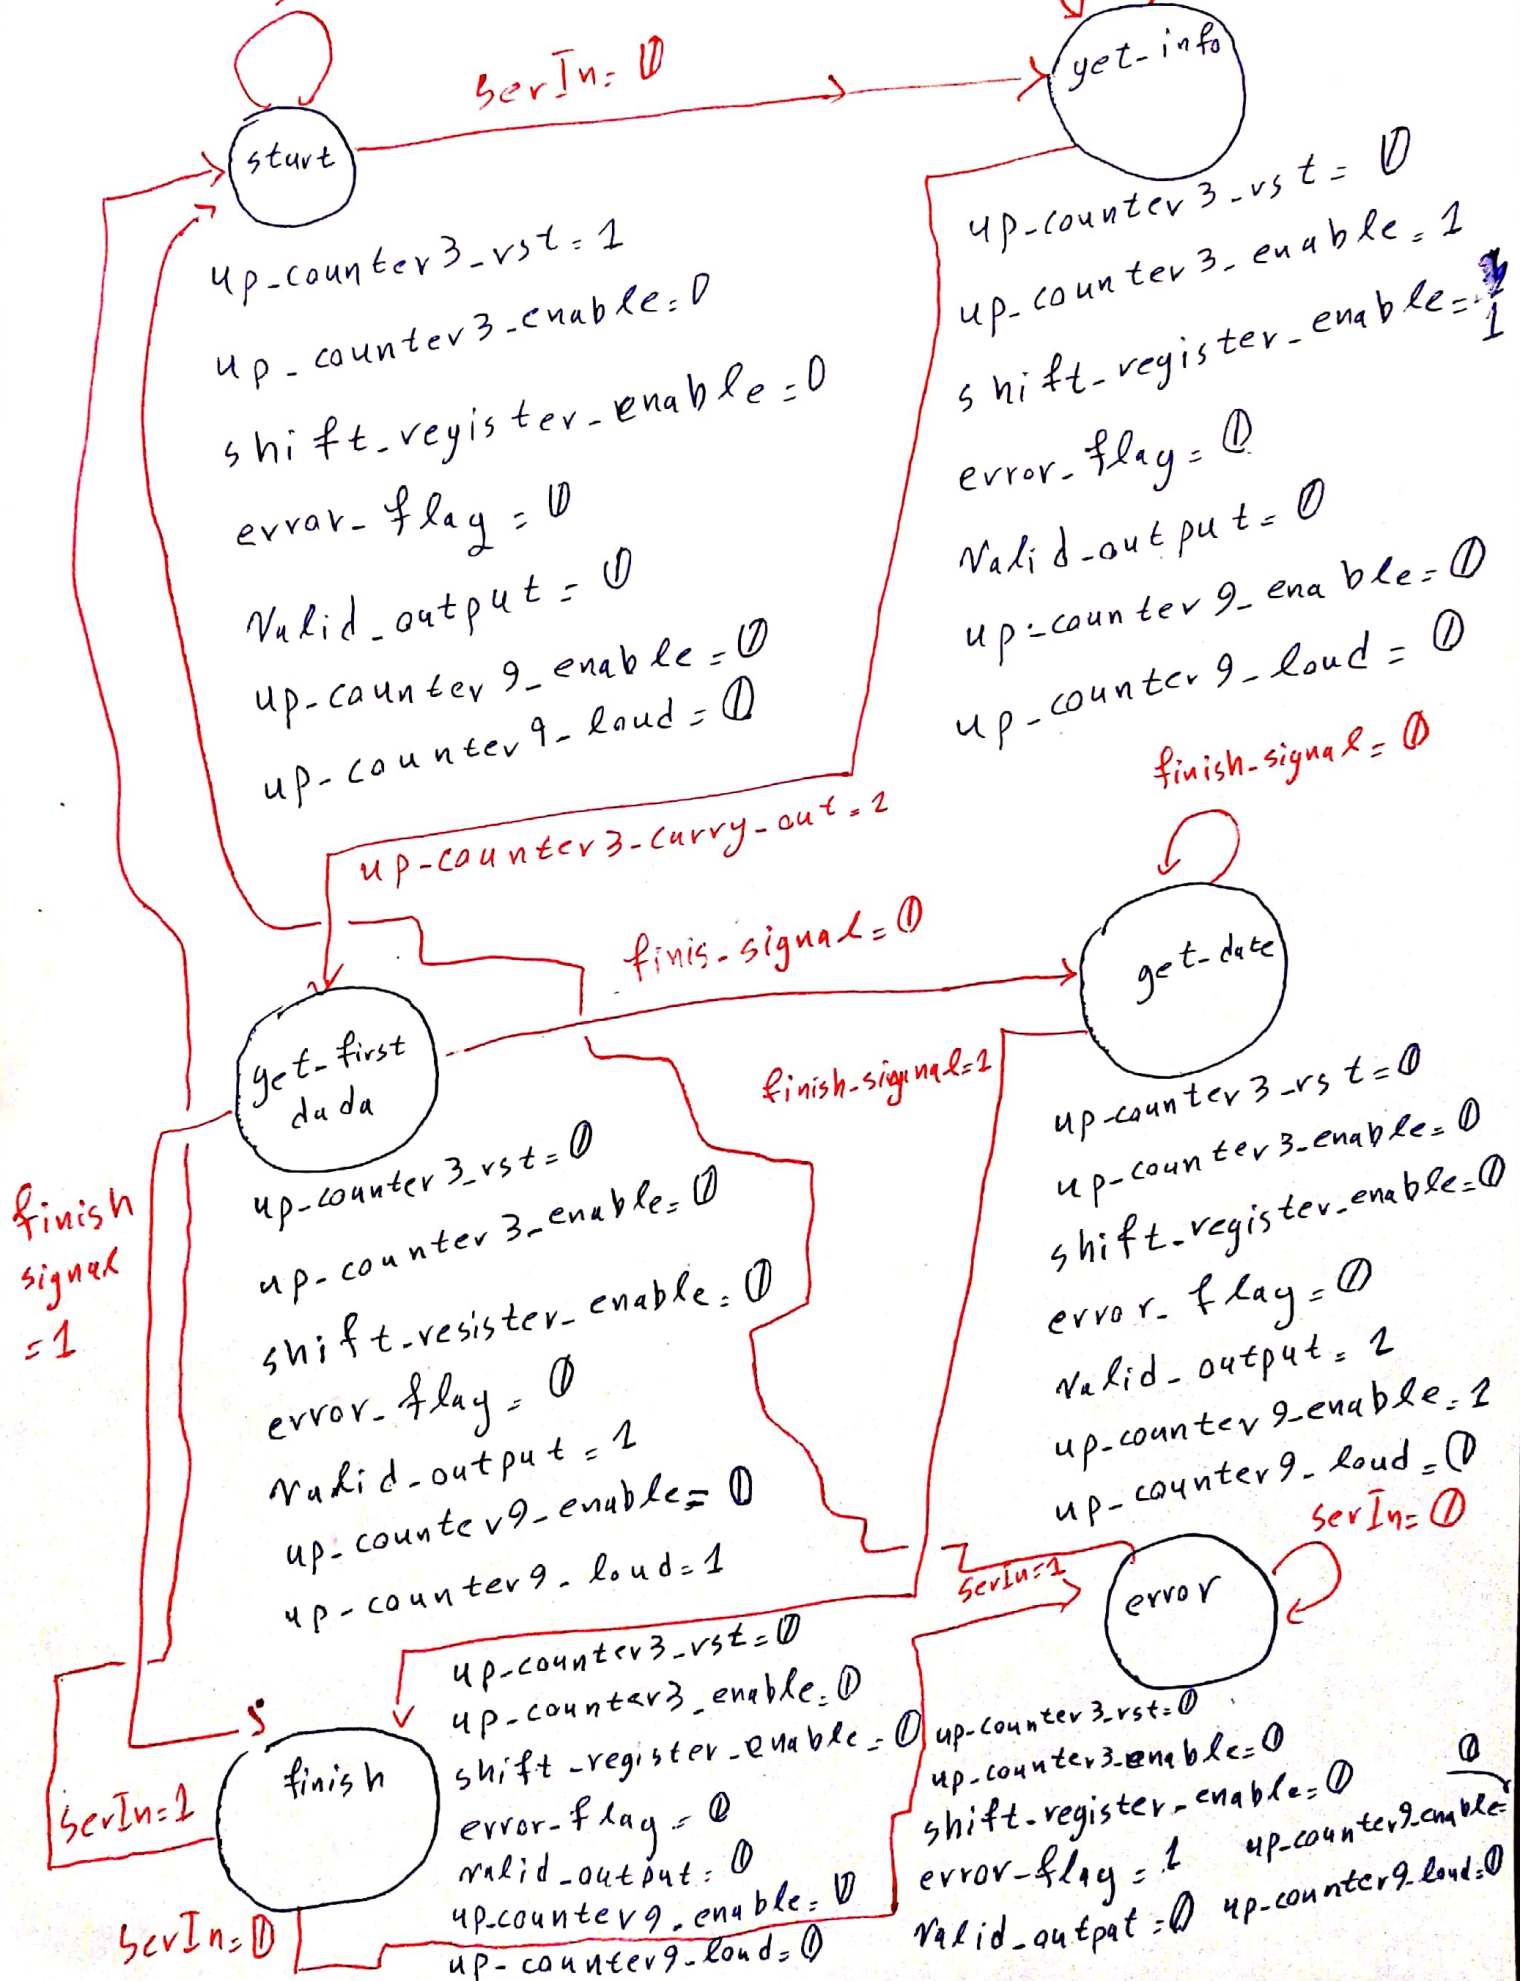 serIn=0
get-info
start
up-counter3-rst=1
up-counter3-enable=0
shift-register-enable=0
error-flag=0
Valid-output=0
up-counter9-enable=0
up-counter9-load=0
up-counter3-rst=0
up-counter3-enable=1
shift-register-enable=1
error-flag=0
Valid-output=0
up-counter9-enable=0
up-counter9-load=0
up-counter3-carry-out=1
finish-signal=0
finis-signal=0
get-date
get-first
data
finish-signal=1
finish
signal
=1
up-counter3-rst=0
up-counter3-enable=0
shift-resister-enable=0
error-flag=0
Valid-output=1
up-counter9-enable=0
up-counter9-load=1
up-counter3-rst=0
up-counter3-enable=0
shift-register-enable=0
error-flag=0
Valid-output=1
up-counter9-enable=1
up-counter9-load=0
serIn=0
serIn=1
error
finish
serIn=1
serIn=0
up-counter3-rst=0
up-counter3-enable=0
shift-register-enable=0
error-flag=0
valid-output=0
up-counter9-enable=0
up-counter9-load=0
up-counter3-rst=0
up-counter3-enable=0
shift-register-enable=0
error-flag=1
Valid-output=0
0
up-counter9-enable=
up-counter9-load=0